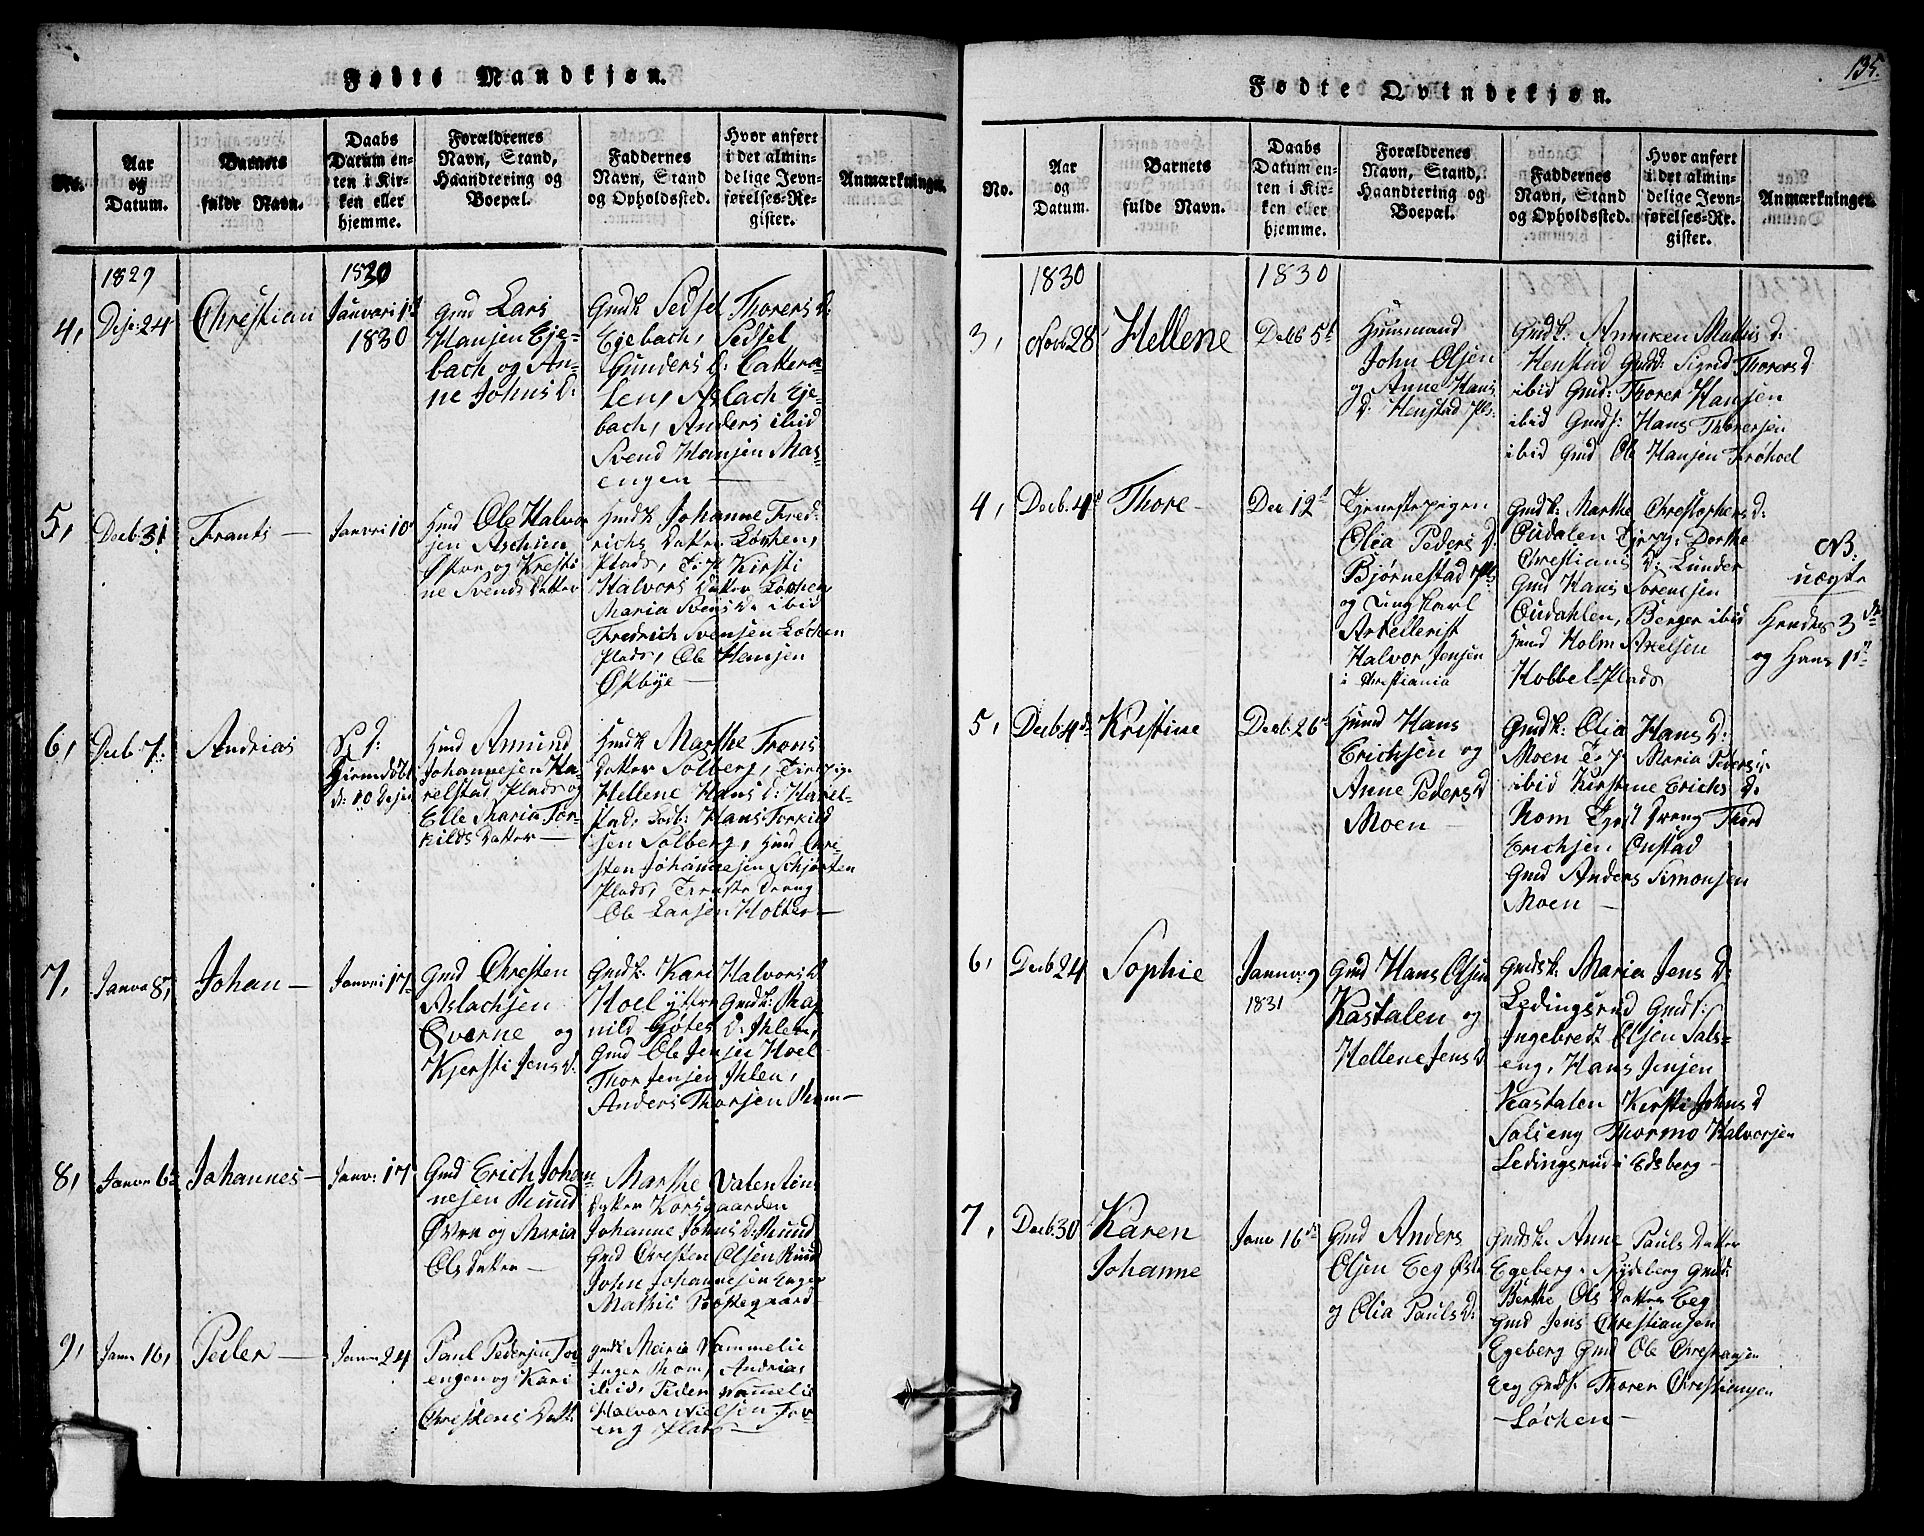 Fødte Mandkjøn.
No.
Aar
og
Datum.
Barnets
fulde Navn.
Daabs
Datum en-
ten i Kir-
ken eller
hjemme.
Forældrenes
Navn, Stand,
Haandtering og
Boepæl.
Faddernes
Navn, Stand
og Opholdssted.
Hvor anført
i det almin-
delige Jevn-
førelses-Re-
gister.
Anmærkninger.
4,
1829
Desr: 24
Christian
1830
Januari 1st
1830
Gmd Lars
Hansen Eje-
bach og An-
ne Johns D:
Gmdk Sedsel Thorers D:
Ejebach, Sedsel
Gunders D:
Aslach Eje-
bach, Anders ibid
Svend Hansen Mas-
engen
5,
Decb 31
Frants
Janvri 10
Hmd Ole Halvor
sen Aschim
Østre og Kresti
ne Svends Datter
Hmdk Johanne Fred-
richs Datter Løcken,
Plads, T: P Kirsti
Halvors Datter Løchen
Maria Svens D: ibid
Fredrich Svensen Løcken
Plads, Ole Hansen
Oppbye
6,
Decb 7
Andrias
Hjemdøbt
d: 10 Desr
Hmd Amund
Johannesen Ha-
relstad Plads og
Elle Maria Tor-
kilds Datter
Hmdk Marthe Trons
Datter Solberg, Tienpige
Hellene Hans D: Harel-
stad, Hans Torkild
sen Solberg, Hmd Chre-
sten Johannesen Schjørten
Plads, Tieneste Dreng
Ole Larsen Holter
7,
Janva 8,
Johan
Janvri 17
Gmd Chresten
Aslachsen
Qverne og
Kjersti Jens D:
Gmdk: Kari Halvors D
Hoel yttre Gmdk: Mag
nild Gøtes D: Ihlen,
Gmd Ole Jensen Hoel
Thor Jensen Ihlen,
Anders Thorsen Mom
8,
Janvr 6te
Johannes
Janv: 17
Gmd Erich Johan-
nesen Ruud
Østre og Maria
Ols Datter
Marthe Valentins
Datter Korsgaarden
Johanne Johns D: Ruud
Gmd Chresten Olsen Ruud
John Johannesen Enger
Mathis Prestegaard
9,
Janv 16,
Peder
Janv 24
Paul Pedersen Tor
engen og Kari
Chrestens Datt:
gmdk Maria Vammelie
Inger Mom, Andrias
ibid, Peder Vammelie
Halvor Nielsen Tor-
eng Plads
135.
Fødte Qvindekjøn.
No.
Aar
og
Datum.
Barnets
fulde Navn.
Daabs
Datum en-
ten i Kir-
ken eller
hjemme.
Forældrenes
Navn, Stand,
Haandtering og
Boepæl.
Faddernes
Navn, Stand
og Opholdssted.
Hvor anført
i det almin-
delige Jevn-
førelses-Re-
gister.
Anmærkninger.
3,
1830
Novb 28
Hellene
1830
Decb 5t
Huusmand
John Olsen
og Anne Hans
D: Henstad Pls:
Gmdk: Anniken Mathis D:
Henstad Gmdd: Sigrid Thorers D
ibid Gmd: Thorer Hansen
ibid Gmds: Hans Thorersen
ibid Gmd Ole Hansen Frøhoel
4,
Decb. 4de
Thore
Dec 12t
Tjenestepigen
Olia Peders D:
Bjørnestad Pls
og Ungkarl
Artellerist
Halvor Jensen
i Chrestiania
Gmdk: Marthe Chrestophers D:
Oudalen Tjeepg: Dorthe
Chrestians D: Lunder
Gmd Hans Sørensen
Oudahlen, Berger ibid
Hmd Holm Axelsen
Kobbel Plads
NB:
uægte
Hendes 3die
og Hans 1ste
5,
Decb 4de
Kristine
Decb. 26
Hmd Hans
Erichsen og
Anne Peders D
Moen
Gmdk: Olia Hans D:
Moen T: P Maria Peders D:
ibid Kirstine Erichs D:
Rom Tjest Dreng Thord
Erichsen Onstad
Gmd Anders Simonsen
Moen
6,
Decb 24
Sophie
Janv: 9
1831
Gmd Hans Olsen
Kastalen og
Hellene Jens D
Gmdsk: Maria Jens D:
Ledingsrud Gmds:
Ingebredt Olsen Sals=
eng, Hans Jensen
Kastalen Kirsti Johns D
Salseng Thormo Halvorsen
Ledingsrud i Edsberg
7,
Decb: 30
Karen
Johanne
Janv 16de
Gmd Anders
Olsen Eeg Østre
og Olia Pauls D:
Gmdsk: Anne Pauls Datter
Egeberg i Spydeberg Gmdd:
Berthe Ols Datter Eeg
Gmd Jens Chrestiansen
Egeberg Gmd Ole Chrestiansen
Eeg Gmds: Thorer Chrestiansen
Løchen